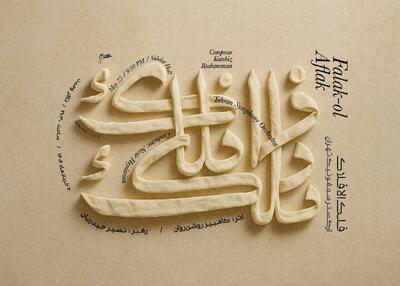 Falak-ol
Aflak
Composer
Kambiz
Roshanravan
May 25 / 9:30 PM / Vahdat Hall
Tehran Symphony Orchestra
Conductor: Nasir Heydarian
فلک الافلاک
فلک الافلاک
ارکستر سمفونیک تهران
اثر: کامبیز روشن‌روان / رهبر: نصیر حیدریان